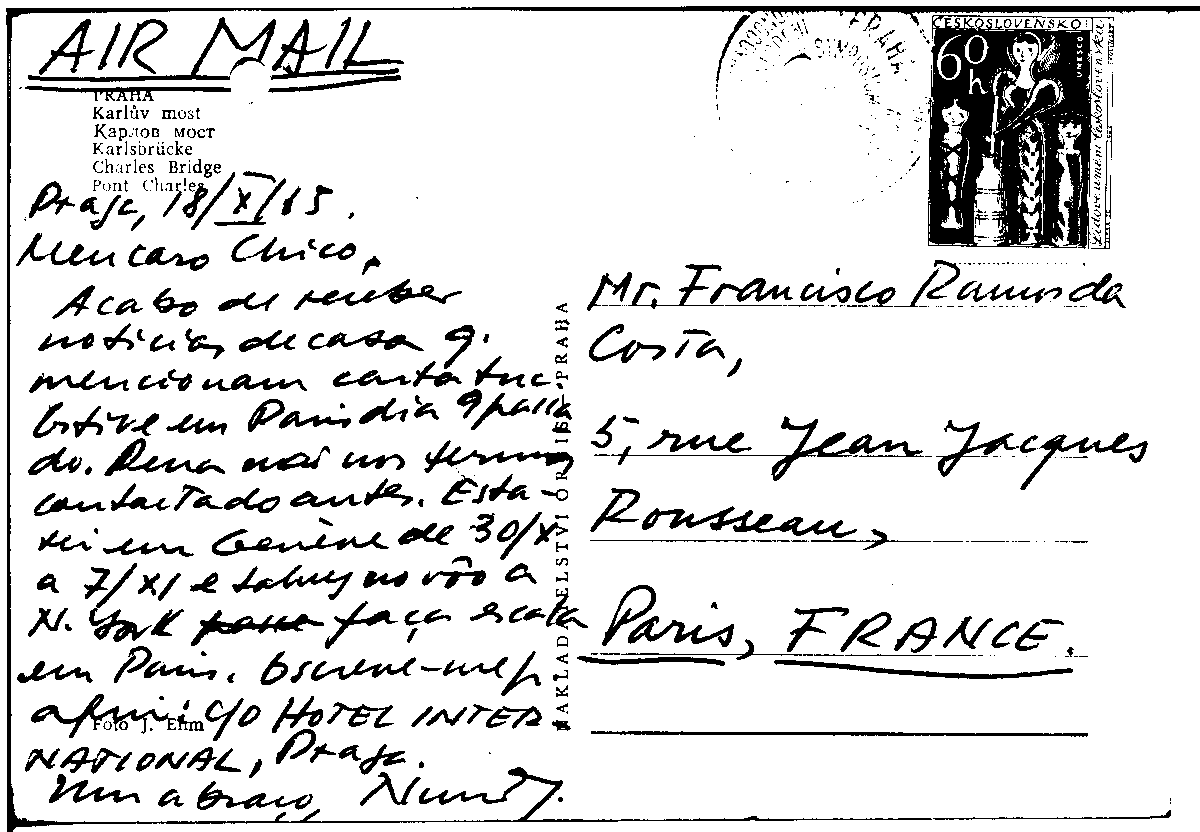 AIR MAIL
PRAHA
Karlův most
Карлов мост
Karlsbrücke
Charles Bridge
Pont Charles
Praga, 18/XI/65.
Meu caro Chico,
Acabo de receber
notícias de casa q.
mencionam carta tua.
Estive em Paris dia 9 passa
do. Pena não nos termos
contactado antes. Esta-
rei em Genève de 30/X
a 7/XI e talvez no vôo a
N. York faça escala
em Paris. Escreve-me p/
aqui: c/o HOTEL INTER
NATIONAL, Praga.
Um abraço,
Foto J. Ehm
NAKLADATELSTVÍ ORBIS PRAHA
PRAHA
ČESKOSLOVENSKO
60 h
UNESCO
Lidové umění československé
Mr. Francisco Ramos da
Costa,
5, rue Jean Jacques
Rousseau,
Paris, FRANCE.